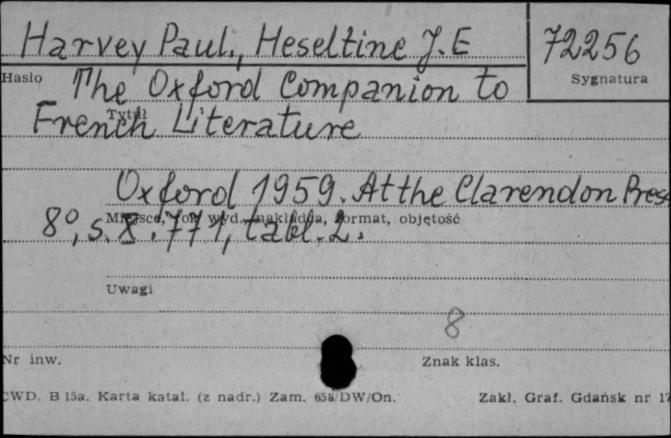 Harvey Paul., Heseltine J.E 72256
Hasło Sygnatura
The Oxford Companion to
Tytuł
French Literature
Oxford 1959. At the Clarendon Press
Miejsce, rok wyd., nakładca, format, objętość
8°, s. X. 771, tabl. 2.
Uwagi
8
Nr inw. Znak klas.
CWD. B 15a. Karta katal. (z nadr.) Zam. 658/DW/On. Zakł. Graf. Gdańsk nr 17